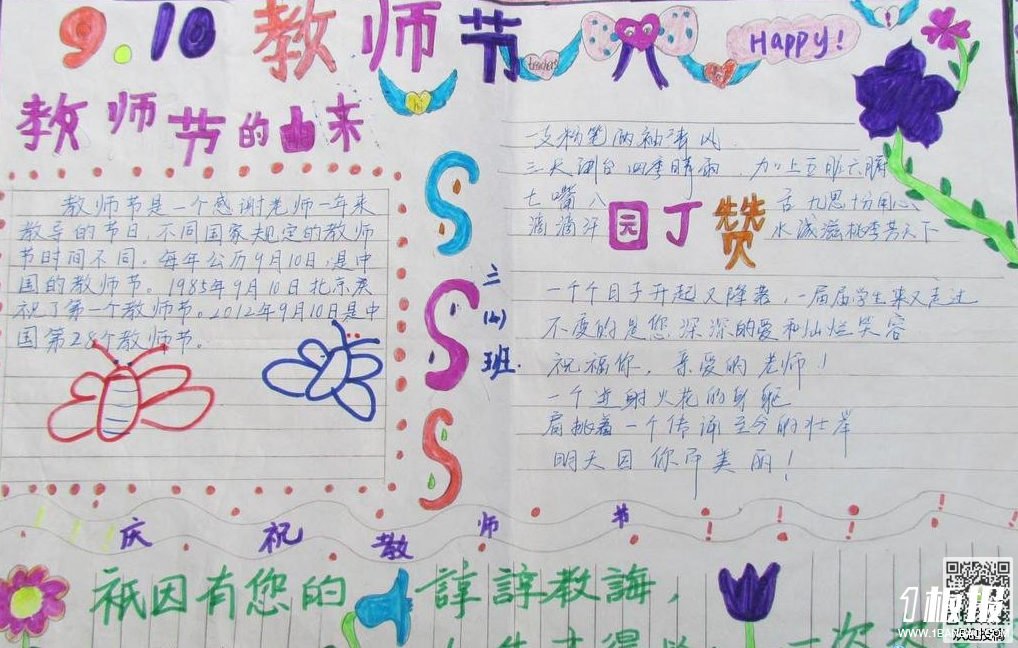 9.10 教师节
Happy!
teachers
教师节的由来
教师节是一个感谢老师一年来
教导的节日,不同国家规定的教师
节时间不同。每年公历9月10日,是中
国的教师节。1985年9月10日北京庆
祝了第一个教师节。2012年9月10日是中
国第28个教师节。
SSS
三(4)班.
园丁赞
一支粉笔两袖清风
三尺讲台四季晴雨,加上五脏六腑
七嘴八舌九思十分用心
滴滴汗水诚滋桃李芳天下
一个个日子升起又降落,一届届学生来又走过
不变的是您深深的爱和灿烂笑容
祝福你,亲爱的老师!
一个迸射火花的身躯
肩挑着一个传诵至今的壮举
明天因你而美丽!
庆祝教师节
祇因有您的諄諄教誨,
一次
1板报
WWW.1BANBAO.COM